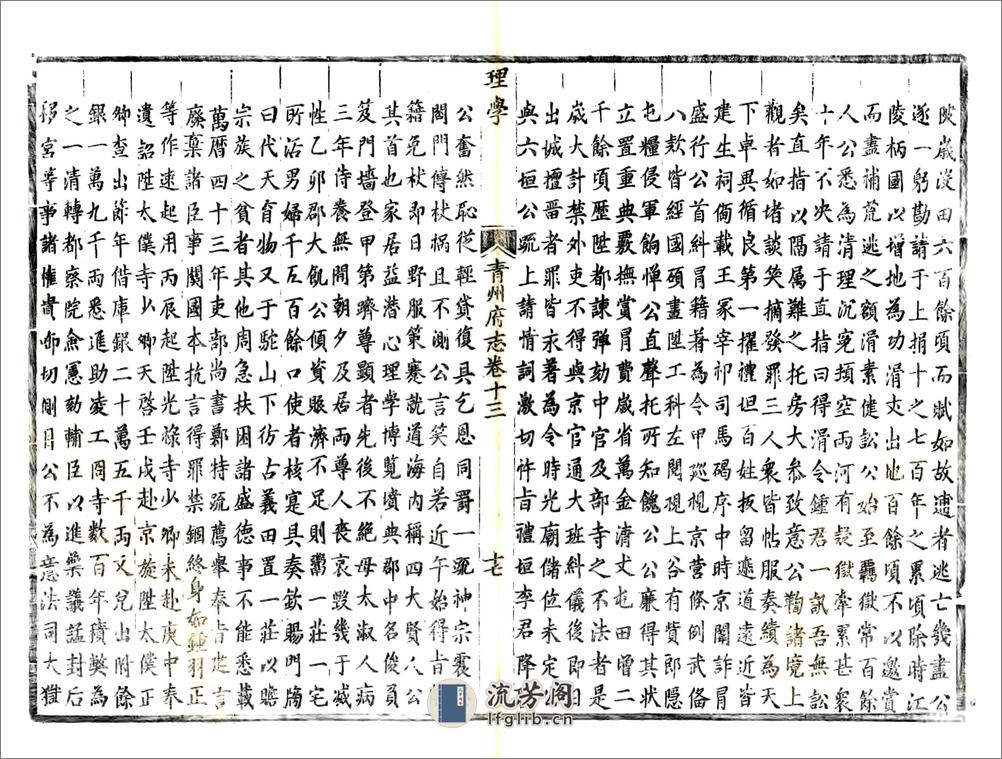 陂歲沒田六百餘頃而賦如故逋者逃亡幾盡公
遂一躬勘請于上捐十之七百年之累頃除時江
陵柄國以增地為功滑夾出地百餘頃不以邀賞
而盡補荒逃之額滑素健訟公始至羈獄常百餘
人公悉為清理沉冤頓空兩河有疑獄牽累甚衆
十年不决請于直指曰得滑令鍾君一訊吾無訟
矣直指以隔属難之托房大參致意公鞫諸境上
觀者如堵談笑摘發罪三人衆皆帖服奏績為天
下卓異循良第一擢禮垣百姓扳留遮道遠近皆
建生祠倘載王冢宰祠司馬碣序中時京詐冐
盛行公首糾冐籍著為令甲廵視京營條例武俻
八欵皆經國碩畫陞工科左閱視上谷有貲郎隱
屯糧侵軍餉憚公直聲托所知餽公公廉得其状
立置重典覈撫賞冐費歲省萬金清丈屯田增二
千餘頃歷陞都諫弹劾中官及部寺之不法者是
歲大計禁外吏不得與京官通大班糾儀後即日
出城擅詈者罪皆永著為令時光廟儲位未定公
與六垣公疏上請㫖詞激切忤㫖禮垣李君降
理學
青州府志卷十三
十七
公奮然恥從輕貸復具乞恩同罰一疏神宗震
閣門傳杖禍且不測公言笑自若近午始得㫖
籍免杖即日野服策蹇就道海内稱四大賢人公
其首也家居益潜心理學博覧墳典郡中名俊員
笈門墻登甲第躋尊顯者先後不絶母太淑人病
三年侍養無間朝夕及居兩尊人喪哀毀幾于减
性乙卯郡大飢公傾貲賑濟不足則鬻一莊一宅
所活男婦千五百餘口使者核寔具奏欽賜門牓
曰代天育物又于駝山下彷占義田置一莊以贍
宗族之貧者其他周急扶困諸盛德事不能悉載
萬曆四十三年吏部尚書鄭特流薦舉奉㫖建言
廢棄諸臣事關國本抗言得罪禁錮終身如鍾羽正
等作速起用丙辰起陞光祿寺少卿未赴庚申奉
遺詔陞太僕寺少卿天啓壬戌赴京旋陞太僕正
卿查出節年借庫銀二十萬五千兩又兌出附餘
銀一萬九千兩悉進助凌工冏寺數百年積獘為
之一清轉都察院僉憲劾輔臣以進藥議謚封后
移宮等事諸權貴啣切剛目公不為意法司大獄
流芳阁
lfglib.cn